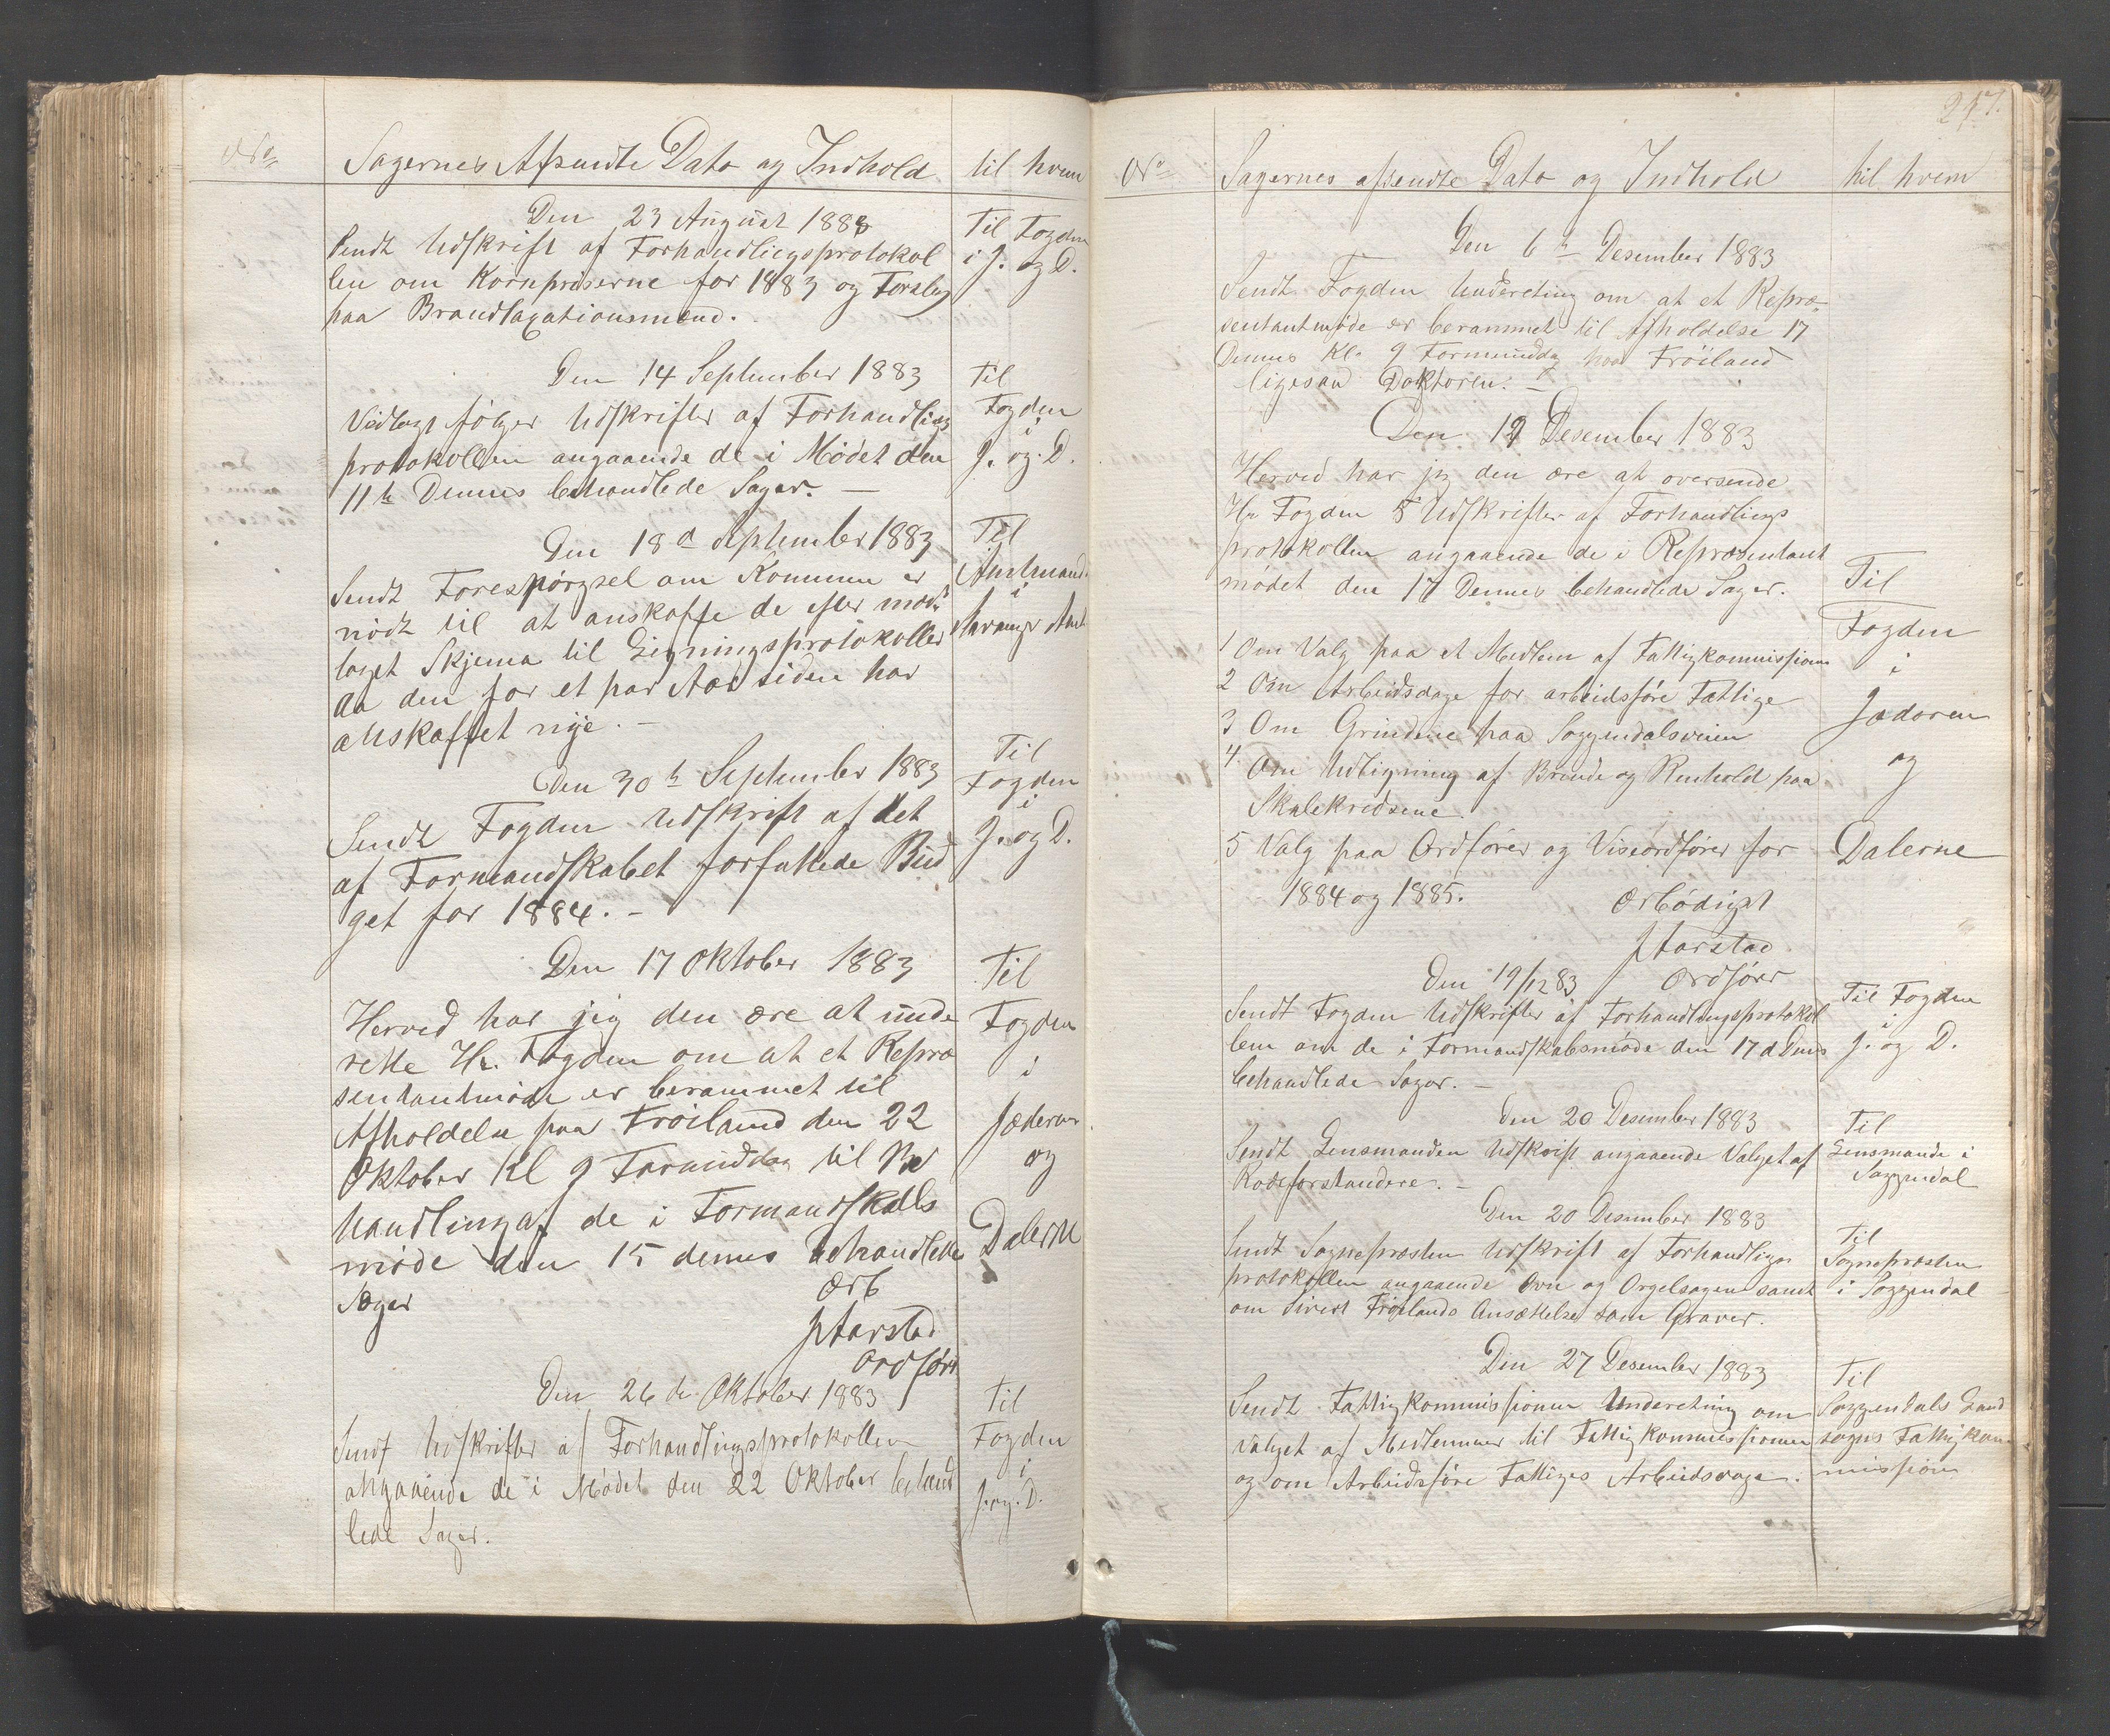 No
Sagernes Afsendte Dato og Indhold
til hvem
Den 23 August 1883
Til Fogden
i J. og D.
Sendt Udskrift af Forhandlingsprotokol
len om Kornpriserne for 1883 og Forslag
paa Brandtaxationsmænd.
Den 14 September 1883
Til
Fogden
i
J. og D.
Vedlagt følger Udskrifter af Forhandlings
protokollen angaaende de i Mødet den
11te Dennes behandlede Sager. —
Den 18d September 1883
Til
Amtmand
i
Stavanger Amt
Sendt Forespørgsel om Kommunen er
nødt til at anskaffe de efter mod
taget Skjema til Ligningsprotokoller
da den for et par Aar siden har
anskaffet nye. —
Den 30te September 1883
Til
Fogden
i
J. og D.
Sendt Fogden Udskrift af det
af Formandskabet forfattede Bud
get for 1884. -
Den 17 Oktober 1883
Til
Fogden
i
Jæderen
og
Dalerne
Herved har jeg den ære at unde
rette Hr. Fogden om at et Repræ
sentantmøde er berammet til
Afholdelse paa Frøiland den 22
Oktober Kl 9 Formiddag til Be
handling af de i Formandskabs
møde den 15 dennes behandlede
Sager
Ærb
J Aarstad
Ordfører
Den 26de Oktober 1883
Til
Fogden
i
J. og. D.
Sendt Udskrifter af Forhandlingsprotokollen
angaaende de i Mødet den 22 Oktober behand
lede Sager.
247.
No
Sagernes afsendte Dato og Indhold
til hvem
Den 6te Desember 1883
Sendt Fogden Underetning om at et Repræ-
sentantmøde er berammet til Afholdelse 17
Dennes Kl. 9 Formiddag hos Frøiland
ligesaa Doktoren. —
Den 19 Desember 1883
Herved har jeg den ære at oversende
Hr Fogden 5 Udskrifter af Forhandlings
protokollen angaaende de i Repræsentant
mødet den 17 Dennes behandlede Sager.
Til
Fogden
i
Jæderen
og
Dalerne
1 Om Valg paa et Medlem af Fattigkommissionen
2 Om Arbeidsdage for arbeidsføre Fattige
3 Om Grindene paa Soggendalsveien
4 Om Udligning af Brænde og Renhold paa
Skolekredsene.
5 Valg paa Ordfører og Viseordfører for
1884 og 1885.
Ærbødigst
J Aarstad
Ordfører
Den 19/12 83
Til Fogden
i
J. og D.
Sendt Fogden Udskrifter af Forhandlingsprotokol
len om de i Formandskabsmøde den 17d Dennes
behandlede Sager. —
Den 20 Desember 1883
Til
Lensmande i
Soggendal
Sendt Lensmanden Udskrift angaaende Valget af
Rodeforstandere. —
Den 20 Desember 1883
Til
Sognepræsten
i Soggendal
Sendt Sognepræsten Udskrift af Forhandlings
protokollen angaaende Ovn og Orgelsagen samt
om Sivert Frøilands Ansættelse som Graver.
Den 27 Desember 1883
Til
Soggendals Land
sogns Fattigkom
mission
Sendt Fattigkommissionen Underetning om
valget af Medlemmer til Fattigkommissionen
og om Arbeidsføre Fattiges Arbeidsdage.